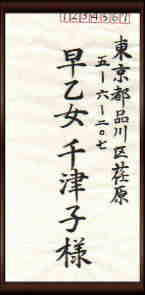 1234567
東京都品川区荏原
五ー六ー二〇七
早乙女 千津子様